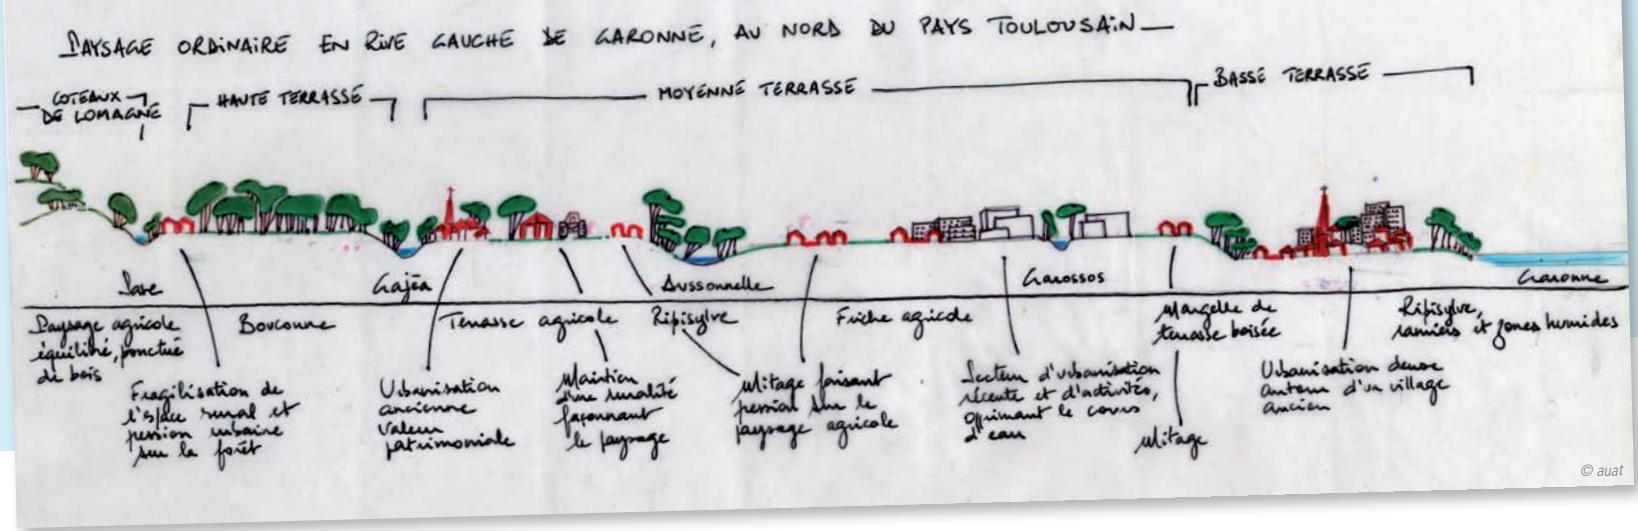 PAYSAGE ORDINAIRE EN RIVE GAUCHE DE GARONNE, AU NORD DU PAYS TOULOUSAIN
COTEAUX
DE LOMAGNE
HAUTE TERRASSE
MOYENNE TERRASSE
BASSE TERRASSE
Save
Gajéa
Aussonnelle
Garossos
Garonne
Paysage agricole
équilibré, ponctué
de bois
Bouconne
Terrasse agricole
Ripisylve
Friche agricole
Margelle de
terrasse boisée
Ripisylve,
ramiers et zones humides
Fragilisation de
l'espace rural et
pression urbaine
sur la forêt
Urbanisation
ancienne
valeur
patrimoniale
Maintien
d'une ruralité
façonnant
le paysage
Mitage faisant
pression sur le
paysage agricole
Secteur d'urbanisation
récente et d'activités,
opprimant le cours
d'eau
Mitage
Urbanisation dense
autour d'un village
ancien
© auat